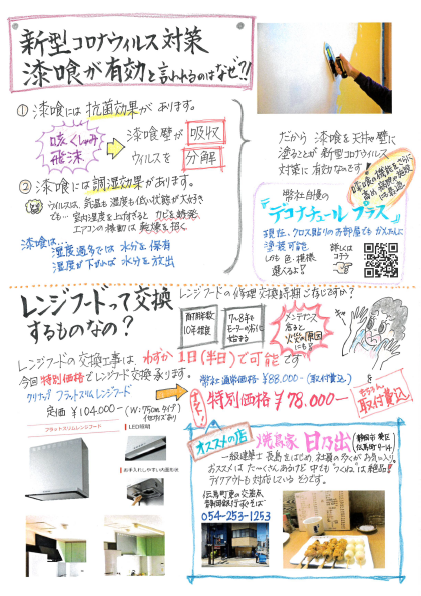 新型コロナウィルス対策
漆喰が有効と言われるのはなぜ?!
① 漆喰には抗菌効果があります。
咳くしゃみ
飛沫
漆喰壁が吸収
ウイルスを分解
② 漆喰には調湿効果があります。
ウイルスは、気温も湿度も低い状態が大好き
でも…室内湿度を上げすぎるとカビを誘発
エアコンの稼動は乾燥を招く。
漆喰は…
湿度過多では水分を保有
湿度が下がれば水分を放出
だから漆喰を天井や壁に
塗ることが新型コロナウィルス
対策に有効なのです!
弊社自慢の
『デコナチュールプラス』
現在、クロス貼りのお部屋でもかんたんに
塗装可能
しかも色・模様
選べるよ?
詳しくは
コチラ
レンジフードって交換
するものなの?
レンジフードの修理交換時期ご存じですか?
耐用年数
10年程度
7〜8年で
モーターの劣化
始まる
メンテナンス
怠ると
火災の原因
にも
レンジフードの交換工事は、わずか1日(半日)で可能です
今回特別価格でレンジフード交換承ります。
クリナップ フラットスリムレンジフード
定価 ¥104,000-(W:75cmタイプ)
弊社通常価格 ¥88,000-(取付費込)を
特別価格 ¥78,000-
取付費込
フラットスリムレンジフード
LED照明
お手入れしやすい大面形状
オススメの店 焼鳥家 日乃出
静岡市葵区
伝馬町9-14
一般建築士 長島をはじめ、社員の多くがお気に入り。
オススメはたーくさんあるけど中でも"つくね"は絶品!
テイクアウトも対応しているそうです。
伝馬町東の交差点
静岡銀行すぐそば
054-253-1253